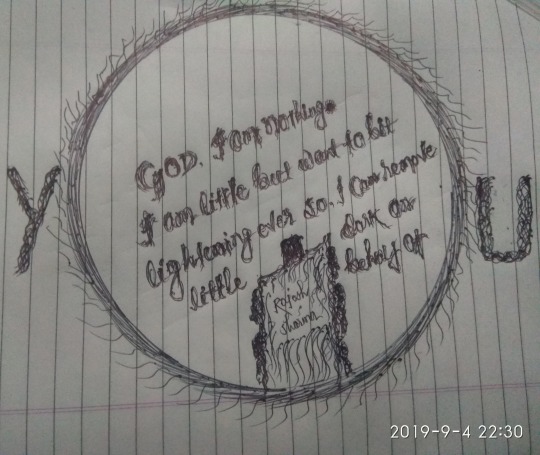 Y O U
GOD. I am nothing.
I am little but want to bit
lightening ever so, I can remove
little dark on
behalf of
Rajesh
sharma
2019-9-4 22:30